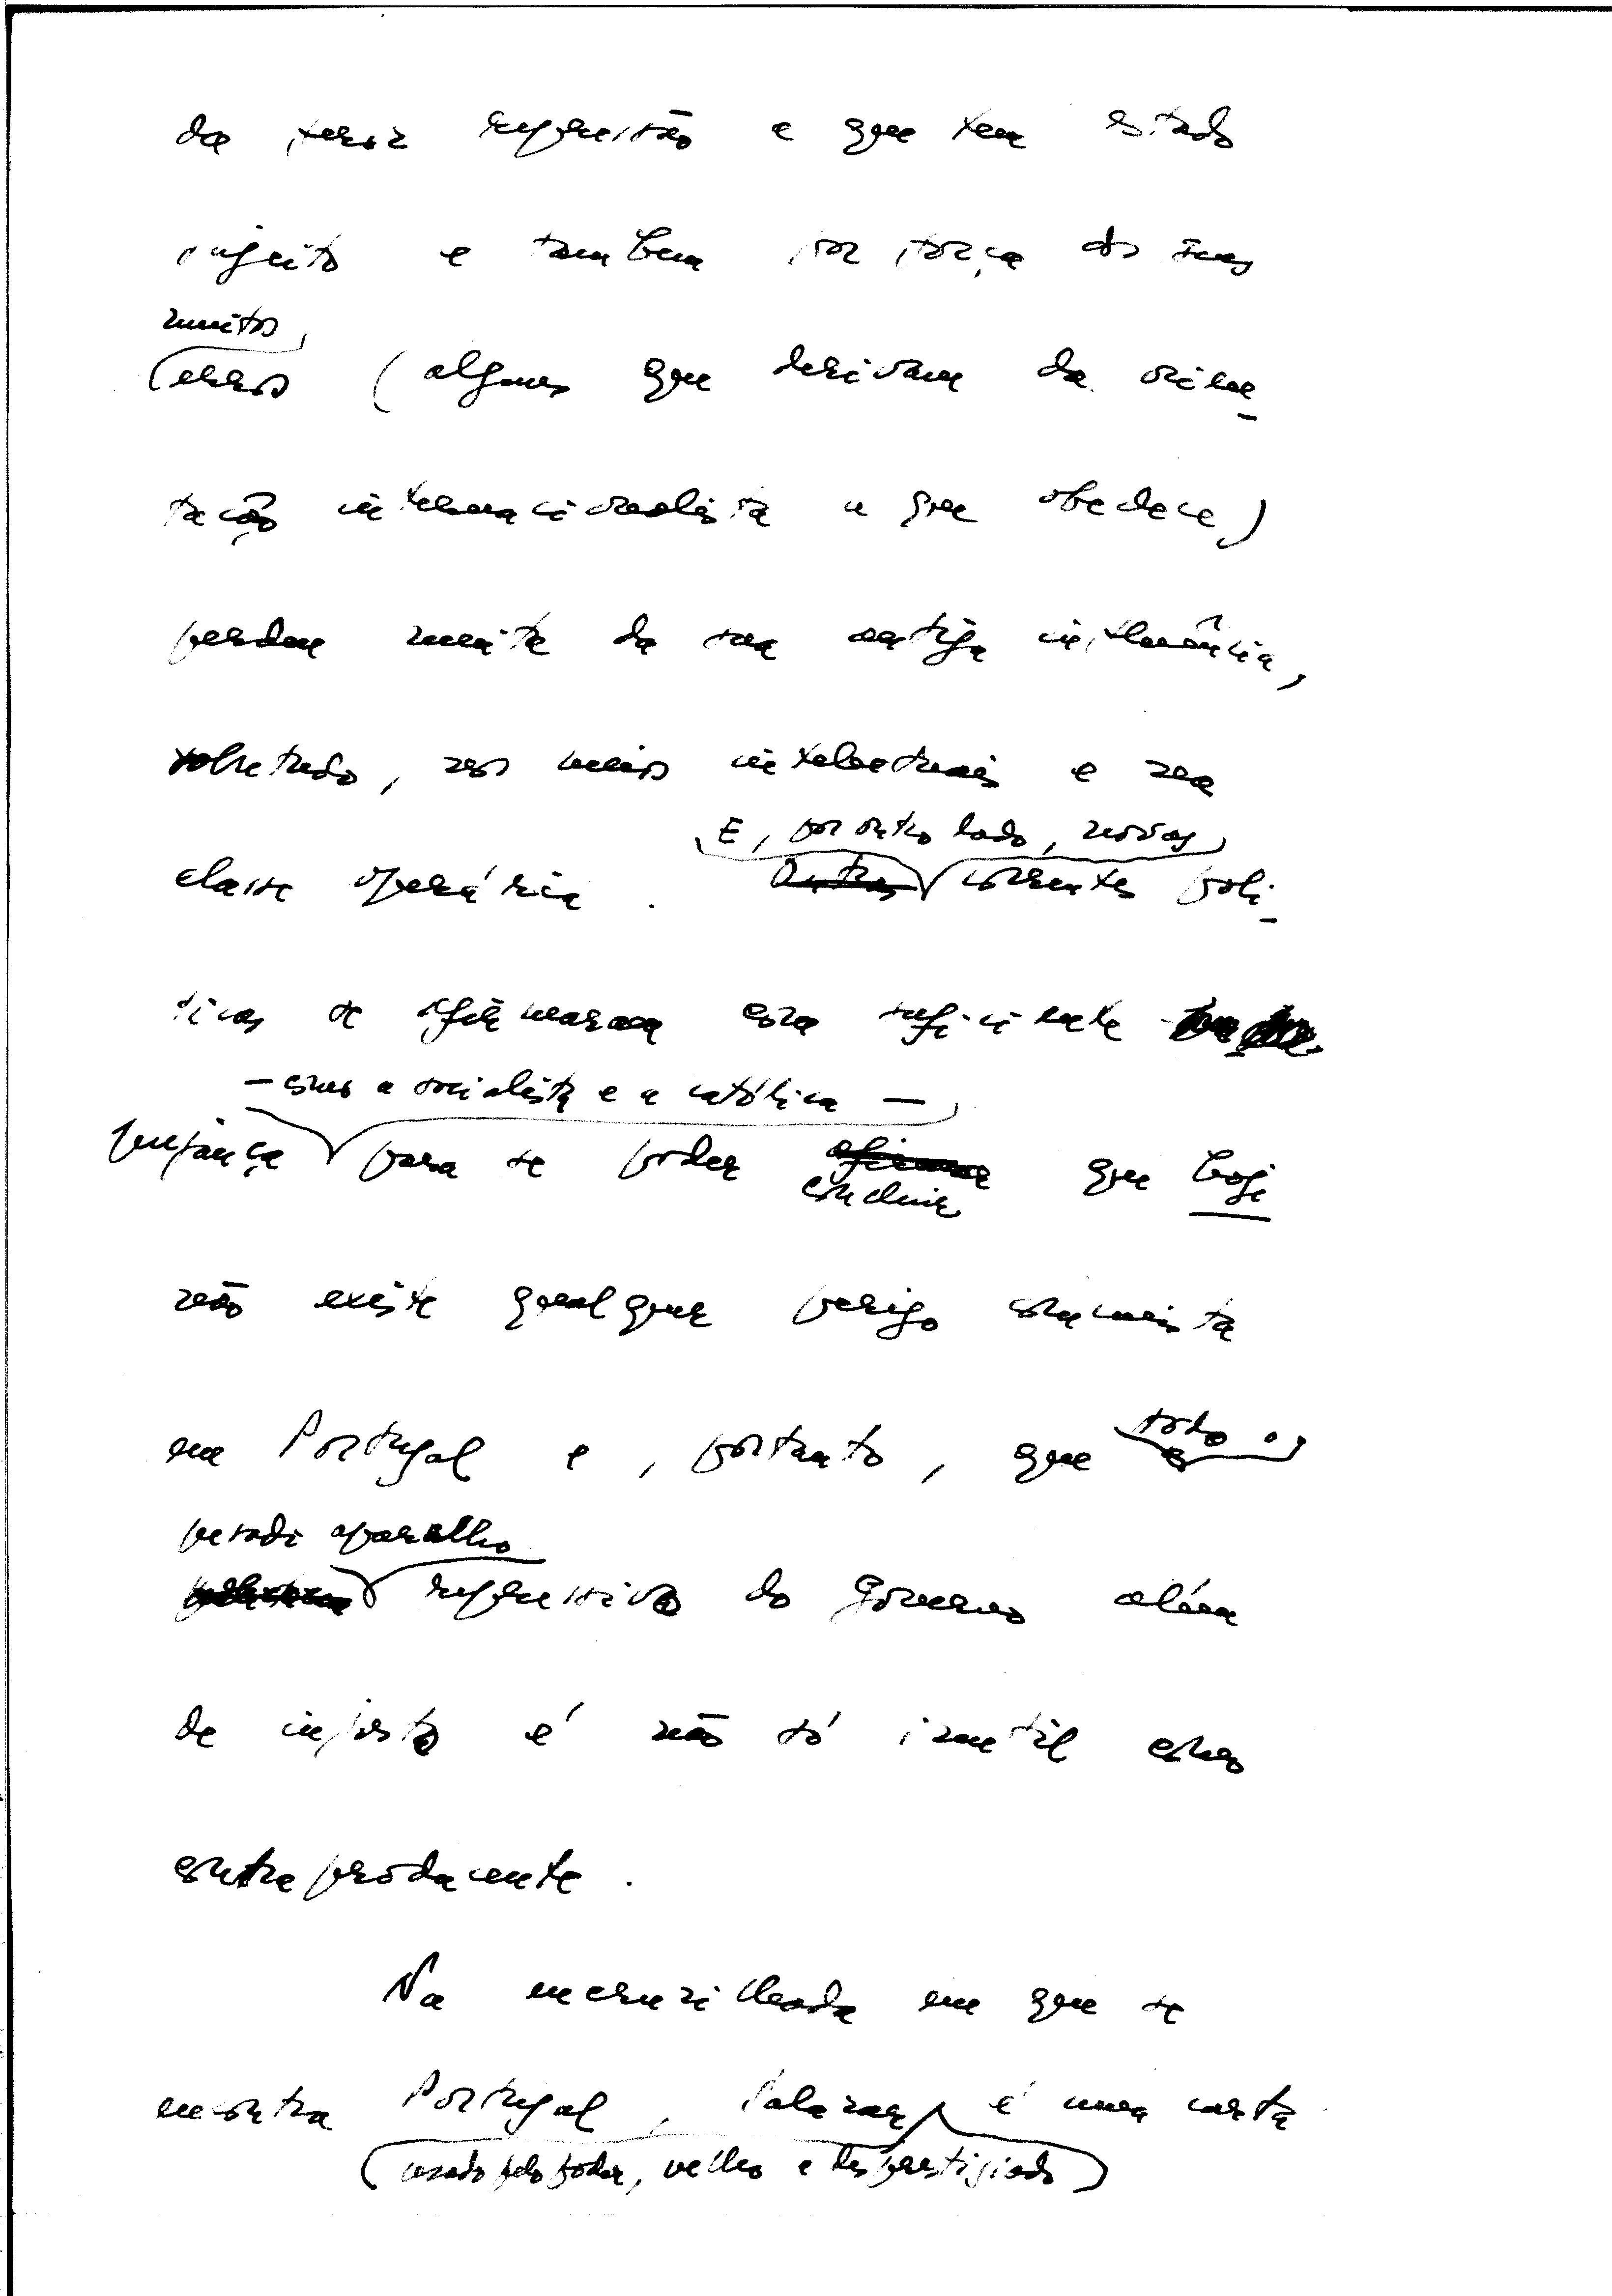 da feroz repressão a que tem estado
sujeito e também por força dos seus
muitos
erros (alguns que derivam da orien-
tação internacionalista a que obedece)
perdeu muita da sua antiga influência,
sobretudo, nos meios intelectuais e na
E, por outro lado, novas
classe operária. Outras correntes polí-
ticas se afirmaram com suficiente
— como a socialista e a católica —
pujança para se poder afirmar que hoje
concluir
não existe qualquer perigo comunista
em Portugal e, portanto, que todo o
pesado aparelho
repressivo do Governo além
de injusto é não só inútil como
contraproducente.
Na encruzilhada em que se
encontra Portugal, Salazar é uma carta
(usado pelo poder, velho e desprestigiado)